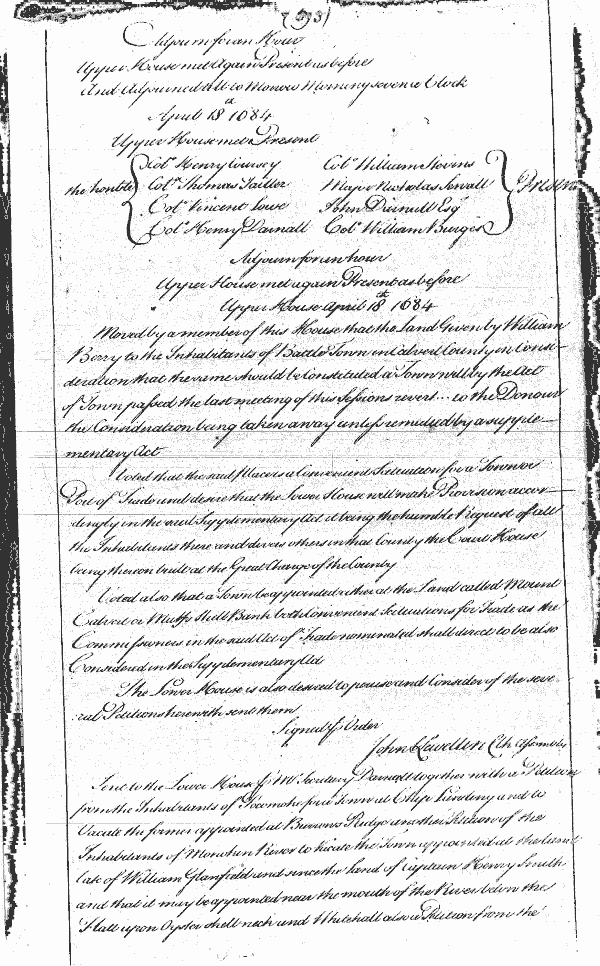 (93)
Adjourn for an Hour
Upper House met Again Present as before
And Adjourned till to Morrow Morning seven a Clock
April 18th 1684
Upper House met Present
the honble { Colo Henry Coursey Colo William Stevins } Present
Colo Thomas Tailler Major Nicholas Sewall
Colo Vincent Lowe John Darnall Esqr
Colo Henry Darnall Colo William Burges
Adjourn for an hour
Upper House met again Present as before
Upper House April 18th 1684
Moved by a member of this House that the Land Given by William
Berry to the Inhabitants of Battle Town in Calvert County in Consi-
deration that the same should be Constituted a Town will by the Act
of Town passed the last meeting of this Sessions revert ... to the Donour
the Consideration being taken away unless remedied by a supple-
mentary Act
Voted that the said Place is a Convenient Scituation for a Town or
Port of Trade and desire that the Lower House will make Provision accor-
dingly in the said Supplementary Act it being the humble Request of all
the Inhabitants there and divers others in that County the Court House
being thereon built at the Great Charge of the County
Voted also that a Town be appointed either at the Land called Mount
Calvert or Mutfs Shell Bank both Convenient Scituations for Trade as the
Commissioners in the said Act of Trade nominated shall direct to be also
Considered in the Supplementary Act
The Lower House is also desired to peruse and Consider of the seve-
ral Petitions herewith sent them
Signed p Order
John Llewellin Clk Assembly
Sent to the Lower House p Mr Secretary Darnall together with a Petition
from the Inhabitants of for a Town at and to
Vacate the former appointed at Burrows Ridge another Petition of the
Inhabitants of Monokin River to Vacate the Town appointed at the Land
late of William Glanfield and since the land of Captain Henry Smith
and that it may be appointed near the mouth of the River between the
Hall upon Oyster shell neck and Whitehall also a Petition from the